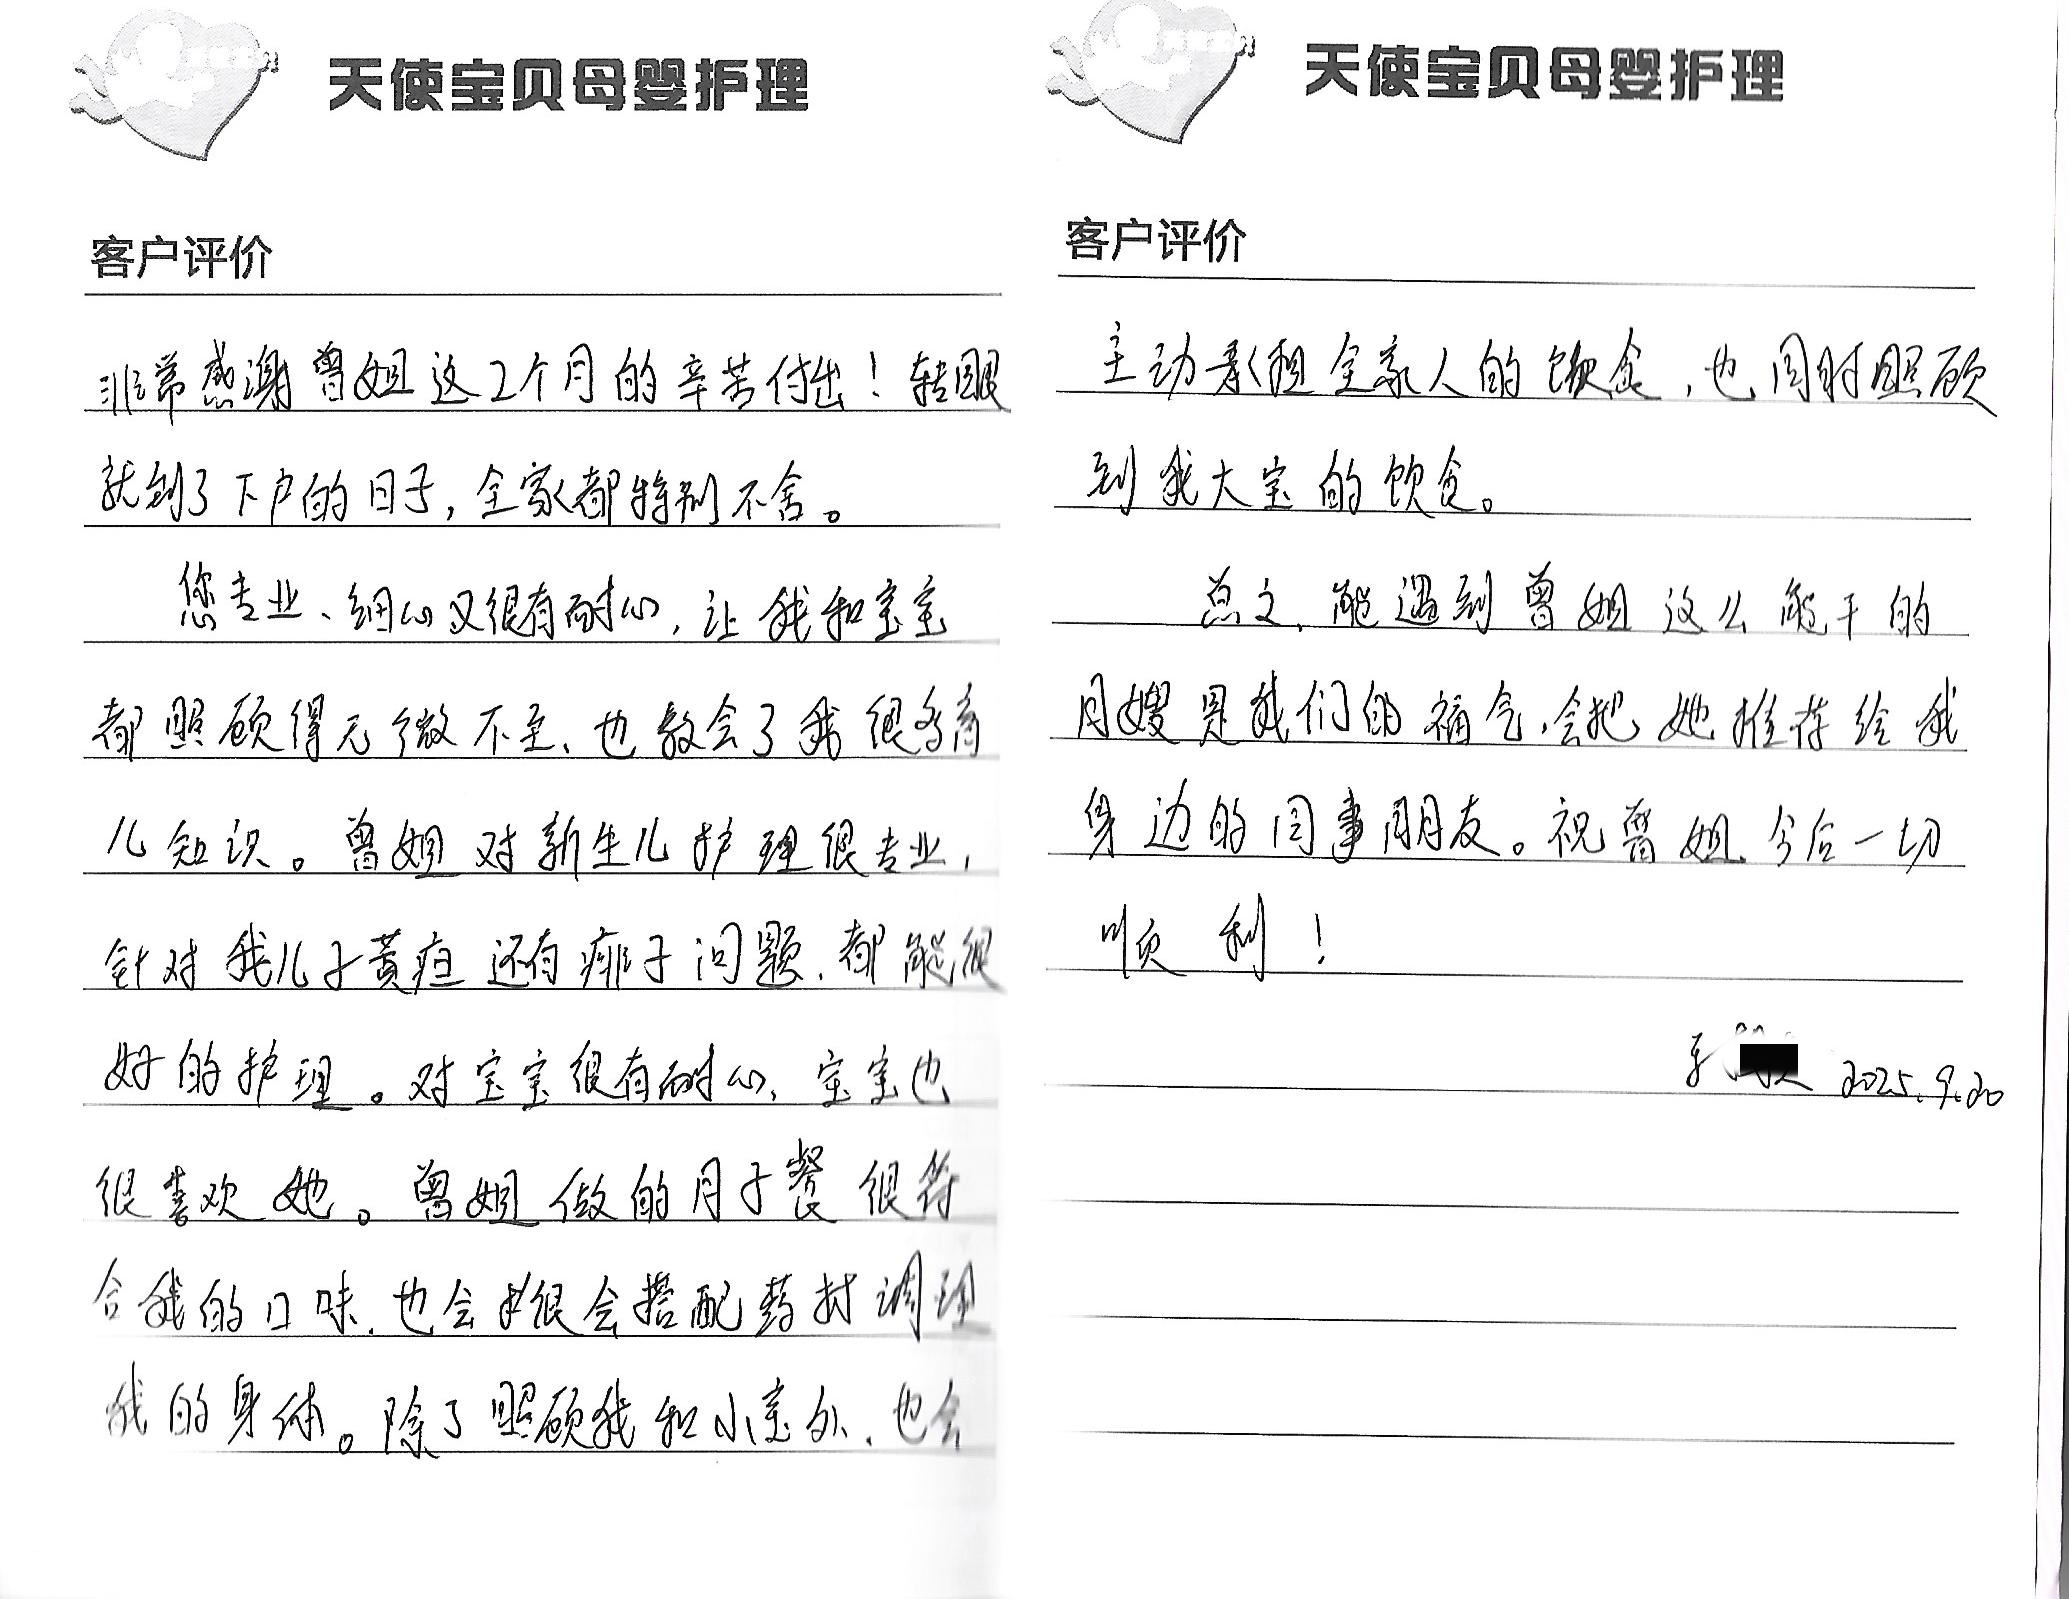 天使宝贝母婴护理
客户评价
非常感谢曾姐这2个月的辛苦付出！转眼
就到了下户的日子，全家都特别不舍。
您专业、细心又很有耐心，让我和宝宝
都照顾得无微不至、也教会了我很多育
儿知识。曾姐对新生儿护理很专业，
针对我儿子黄疸还有痱子问题，都能很
好的护理。对宝宝很有耐心，宝宝也
很喜欢她。曾姐做的月子餐很符
合我的口味，也会很会搭配药材调理
我的身体。除了照顾我和小宝外，也会
天使宝贝母婴护理
客户评价
主动承担全家人的饮食，也同时照顾
到我大宝的饮食。
总之，能遇到曾姐这么能干的
月嫂是我们的福气，会把她推荐给我
身边的同事朋友。祝曾姐今后一切
顺利！
2025.9.20